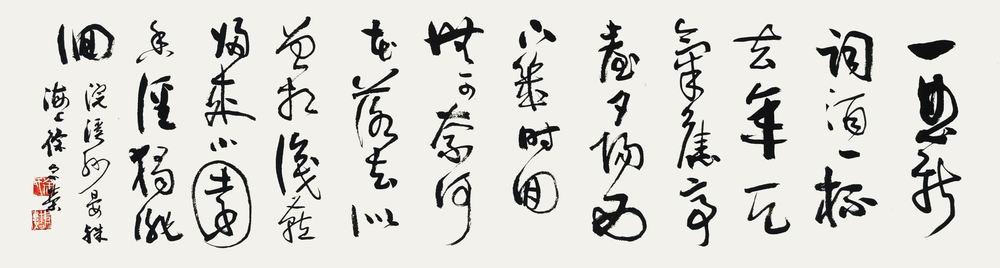 一曲新
詞酒一杯
去年天
氣舊亭
臺夕陽西
下幾時回
無可奈何
花落去似
曾相識燕
歸來小園
香徑獨徘
徊
浣溪沙晏殊
海上徐